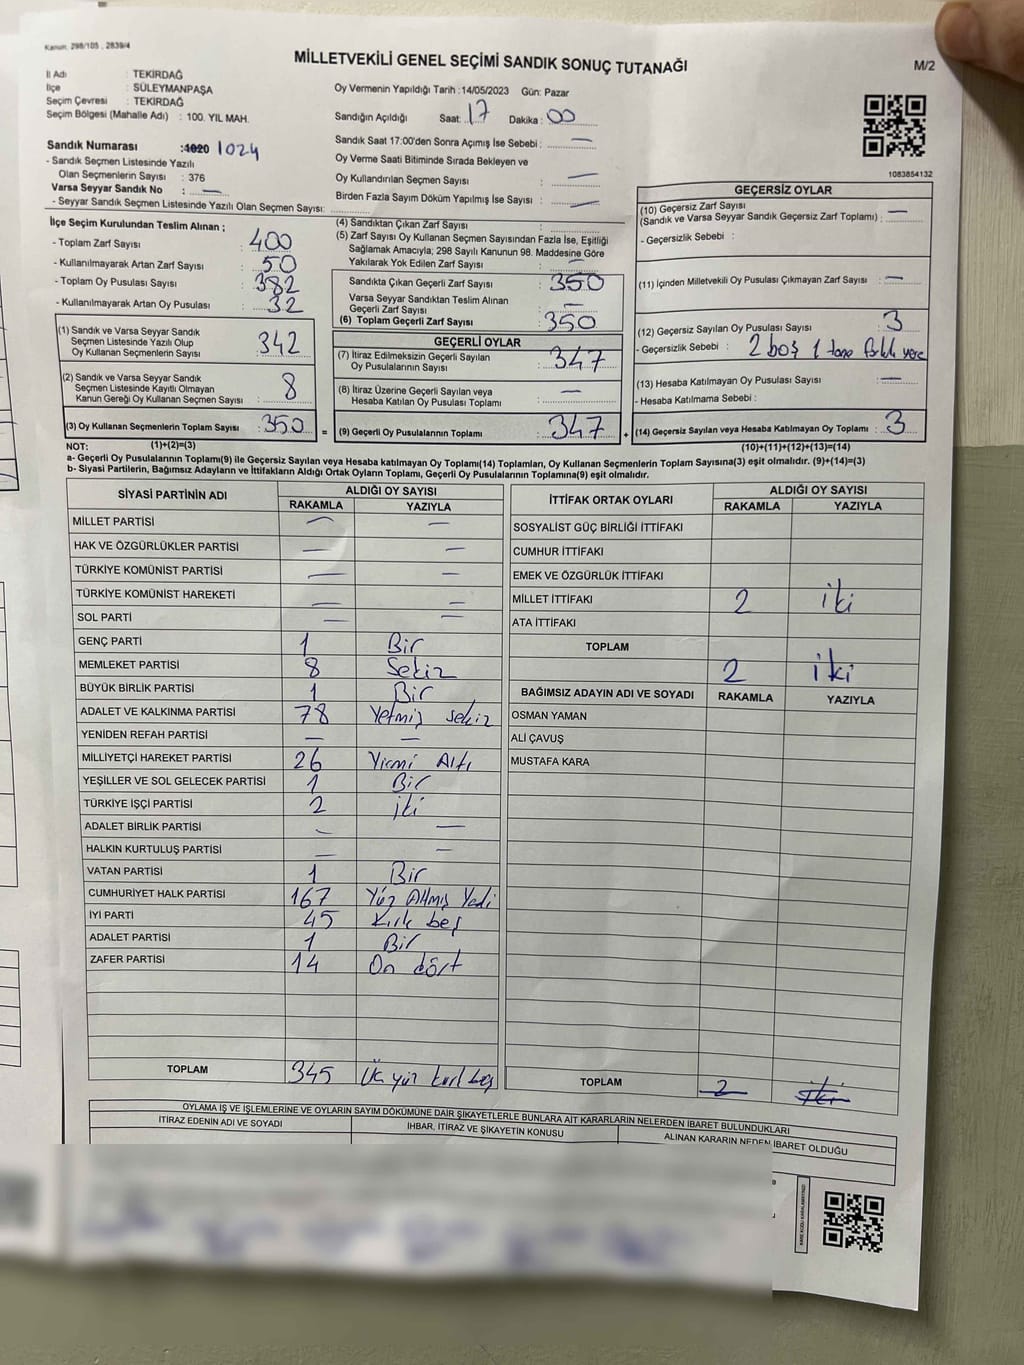 Kanun: 298/105 , 2839/4
MİLLETVEKİLİ GENEL SEÇİMİ SANDIK SONUÇ TUTANAĞI
M/2
İl Adı : TEKİRDAĞ
İlçe : SÜLEYMANPAŞA
Seçim Çevresi : TEKİRDAĞ
Seçim Bölgesi (Mahalle Adı) : 100. YIL MAH.
Oy Vermenin Yapıldığı Tarih :14/05/2023 Gün: Pazar
Sandığın Açıldığı Saat: 17 Dakika : 00
Sandık Saat 17:00'den Sonra Açımış İse Sebebi : —
Oy Verme Saati Bitiminde Sırada Bekleyen ve
Oy Kullandırılan Seçmen Sayısı : —
Birden Fazla Sayım Döküm Yapılmış İse Sayısı : —
Sandık Numarası :1020 1024
- Sandık Seçmen Listesinde Yazılı
Olan Seçmenlerin Sayısı : 376
Varsa Seyyar Sandık No : —
- Seyyar Sandık Seçmen Listesinde Yazılı Olan Seçmen Sayısı:
1083854132
İlçe Seçim Kurulundan Teslim Alınan ;
- Toplam Zarf Sayısı : 400
- Kullanılmayarak Artan Zarf Sayısı : 50
- Toplam Oy Pusulası Sayısı : 382
- Kullanılmayarak Artan Oy Pusulası : 32
(1) Sandık ve Varsa Seyyar Sandık
Seçmen Listesinde Yazılı Olup
Oy Kullanan Seçmenlerin Sayısı : 342
(2) Sandık ve Varsa Seyyar Sandık
Seçmen Listesinde Kayıtlı Olmayan
Kanun Gereği Oy Kullanan Seçmen Sayısı : 8
(3) Oy Kullanan Seçmenlerin Toplam Sayısı : 350 =
(4) Sandıktan Çıkan Zarf Sayısı :
(5) Zarf Sayısı Oy Kullanan Seçmen Sayısından Fazla İse, Eşitliği
Sağlamak Amacıyla; 298 Sayılı Kanunun 98. Maddesine Göre
Yakılarak Yok Edilen Zarf Sayısı : —
Sandıkta Çıkan Geçerli Zarf Sayısı : 350
Varsa Seyyar Sandıktan Teslim Alınan
Geçerli Zarf Sayısı : —
(6) Toplam Geçerli Zarf Sayısı : 350
GEÇERLİ OYLAR
(7) İtiraz Edilmeksizin Geçerli Sayılan
Oy Pusulalarının Sayısı : 347
(8) İtiraz Üzerine Geçerli Sayılan veya
Hesaba Katılan Oy Pusulası Toplamı : —
(9) Geçerli Oy Pusulalarının Toplamı : 347 +
GEÇERSİZ OYLAR
(10) Geçersiz Zarf Sayısı
(Sandık ve Varsa Seyyar Sandık Geçersiz Zarf Toplamı) : —
- Geçersizlik Sebebi :
(11) İçinden Milletvekili Oy Pusulası Çıkmayan Zarf Sayısı : —
(12) Geçersiz Sayılan Oy Pusulası Sayısı : 3
- Geçersizlik Sebebi : 2 boş 1 tane farklı yere
(13) Hesaba Katılmayan Oy Pusulası Sayısı : —
- Hesaba Katılmama Sebebi :
(14) Geçersiz Sayılan veya Hesaba Katılmayan Oy Toplamı : 3
NOT: (1)+(2)=(3) (10)+(11)+(12)+(13)=(14)
a- Geçerli Oy Pusulalarının Toplamı(9) ile Geçersiz Sayılan veya Hesaba katılmayan Oy Toplamı(14) Toplamları, Oy Kullanan Seçmenlerin Toplam Sayısına(3) eşit olmalıdır. (9)+(14)=(3)
b- Siyasi Partilerin, Bağımsız Adayların ve İttifakların Aldığı Ortak Oyların Toplamı, Geçerli Oy Pusulalarının Toplamına(9) eşit olmalıdır.
SİYASİ PARTİNİN ADI ALDIĞI OY SAYISI
RAKAMLA YAZIYLA
MİLLET PARTİSİ — —
HAK VE ÖZGÜRLÜKLER PARTİSİ — —
TÜRKİYE KOMÜNİST PARTİSİ — —
TÜRKİYE KOMÜNİST HAREKETİ — —
SOL PARTİ — —
GENÇ PARTİ 1 Bir
MEMLEKET PARTİSİ 8 Sekiz
BÜYÜK BİRLİK PARTİSİ 1 Bir
ADALET VE KALKINMA PARTİSİ 78 Yetmiş sekiz
YENİDEN REFAH PARTİSİ — —
MİLLİYETÇİ HAREKET PARTİSİ 26 Yirmi Altı
YEŞİLLER VE SOL GELECEK PARTİSİ 1 Bir
TÜRKİYE İŞÇİ PARTİSİ 2 iki
ADALET BİRLİK PARTİSİ — —
HALKIN KURTULUŞ PARTİSİ — —
VATAN PARTİSİ 1 Bir
CUMHURİYET HALK PARTİSİ 167 Yüz Altmış Yedi
İYİ PARTİ 45 Kırk beş
ADALET PARTİSİ 1 Bir
ZAFER PARTİSİ 14 On dört
TOPLAM 345 Üç yüz kırk beş
İTTİFAK ORTAK OYLARI ALDIĞI OY SAYISI
RAKAMLA YAZIYLA
SOSYALİST GÜÇ BİRLİĞİ İTTİFAKI
CUMHUR İTTİFAKI
EMEK VE ÖZGÜRLÜK İTTİFAKI
MİLLET İTTİFAKI 2 iki
ATA İTTİFAKI
TOPLAM 2 iki
BAĞIMSIZ ADAYIN ADI VE SOYADI RAKAMLA YAZIYLA
OSMAN YAMAN
ALİ ÇAVUŞ
MUSTAFA KARA
TOPLAM 2 iki
OYLAMA İŞ VE İŞLEMLERİNE VE OYLARIN SAYIM DÖKÜMÜNE DAİR ŞİKAYETLERLE BUNLARA AİT KARARLARIN NELERDEN İBARET BULUNDUKLARI
İTİRAZ EDENİN ADI VE SOYADI İHBAR, İTİRAZ VE ŞİKAYETİN KONUSU ALINAN KARARIN NEDEN İBARET OLDUĞU